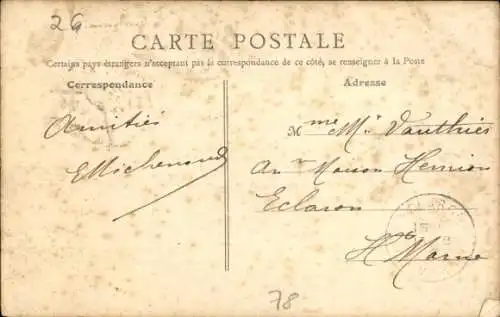 26
CARTE POSTALE
Certains pays étrangers n'acceptant pas la correspondance de ce côté, se renseigner à la Poste
Correspondance
Amitiés
Adresse
Mme M. Vauthier
Maison Henrion
Eclaron
Hte Marne
78